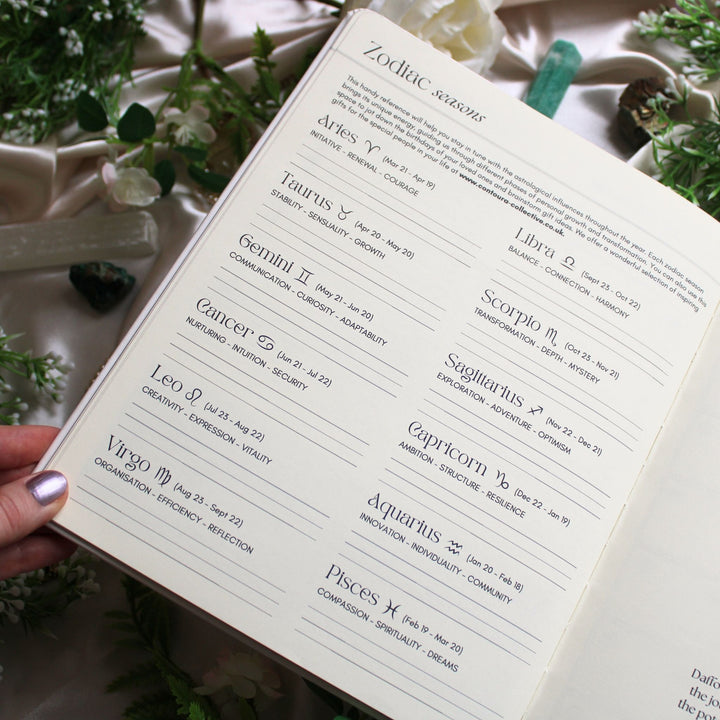 Zodiac seasons
This handy reference will help you stay in tune with the astrological influences throughout the year. Each zodiac season
brings its unique energy, guiding us through different phases of personal growth and transformation. You can also use this
space to jot down the birthdays of your loved ones and brainstorm gift ideas. We offer a wonderful selection of inspiring
gifts for the special people in your life at www.confoura-collective.co.uk.
Aries ♈ (Mar 21 - Apr 19)
INITIATIVE - RENEWAL - COURAGE
Taurus ♉ (Apr 20 - May 20)
STABILITY - SENSUALITY - GROWTH
Gemini ♊ (May 21 - Jun 20)
COMMUNICATION - CURIOSITY - ADAPTABILITY
Cancer ♋ (Jun 21 - Jul 22)
NURTURING - INTUITION - SECURITY
Leo ♌ (Jul 23 - Aug 22)
CREATIVITY - EXPRESSION - VITALITY
Virgo ♍ (Aug 23 - Sept 22)
ORGANISATION - EFFICIENCY - REFLECTION
Libra ♎ (Sept 23 - Oct 22)
BALANCE - CONNECTION - HARMONY
Scorpio ♏ (Oct 23 - Nov 21)
TRANSFORMATION - DEPTH - MYSTERY
Sagittarius ♐ (Nov 22 - Dec 21)
EXPLORATION - ADVENTURE - OPTIMISM
Capricorn ♑ (Dec 22 - Jan 19)
AMBITION - STRUCTURE - RESILIENCE
Aquarius ♒ (Jan 20 - Feb 18)
INNOVATION - INDIVIDUALITY - COMMUNITY
Pisces ♓ (Feb 19 - Mar 20)
COMPASSION - SPIRITUALITY - DREAMS
the
the